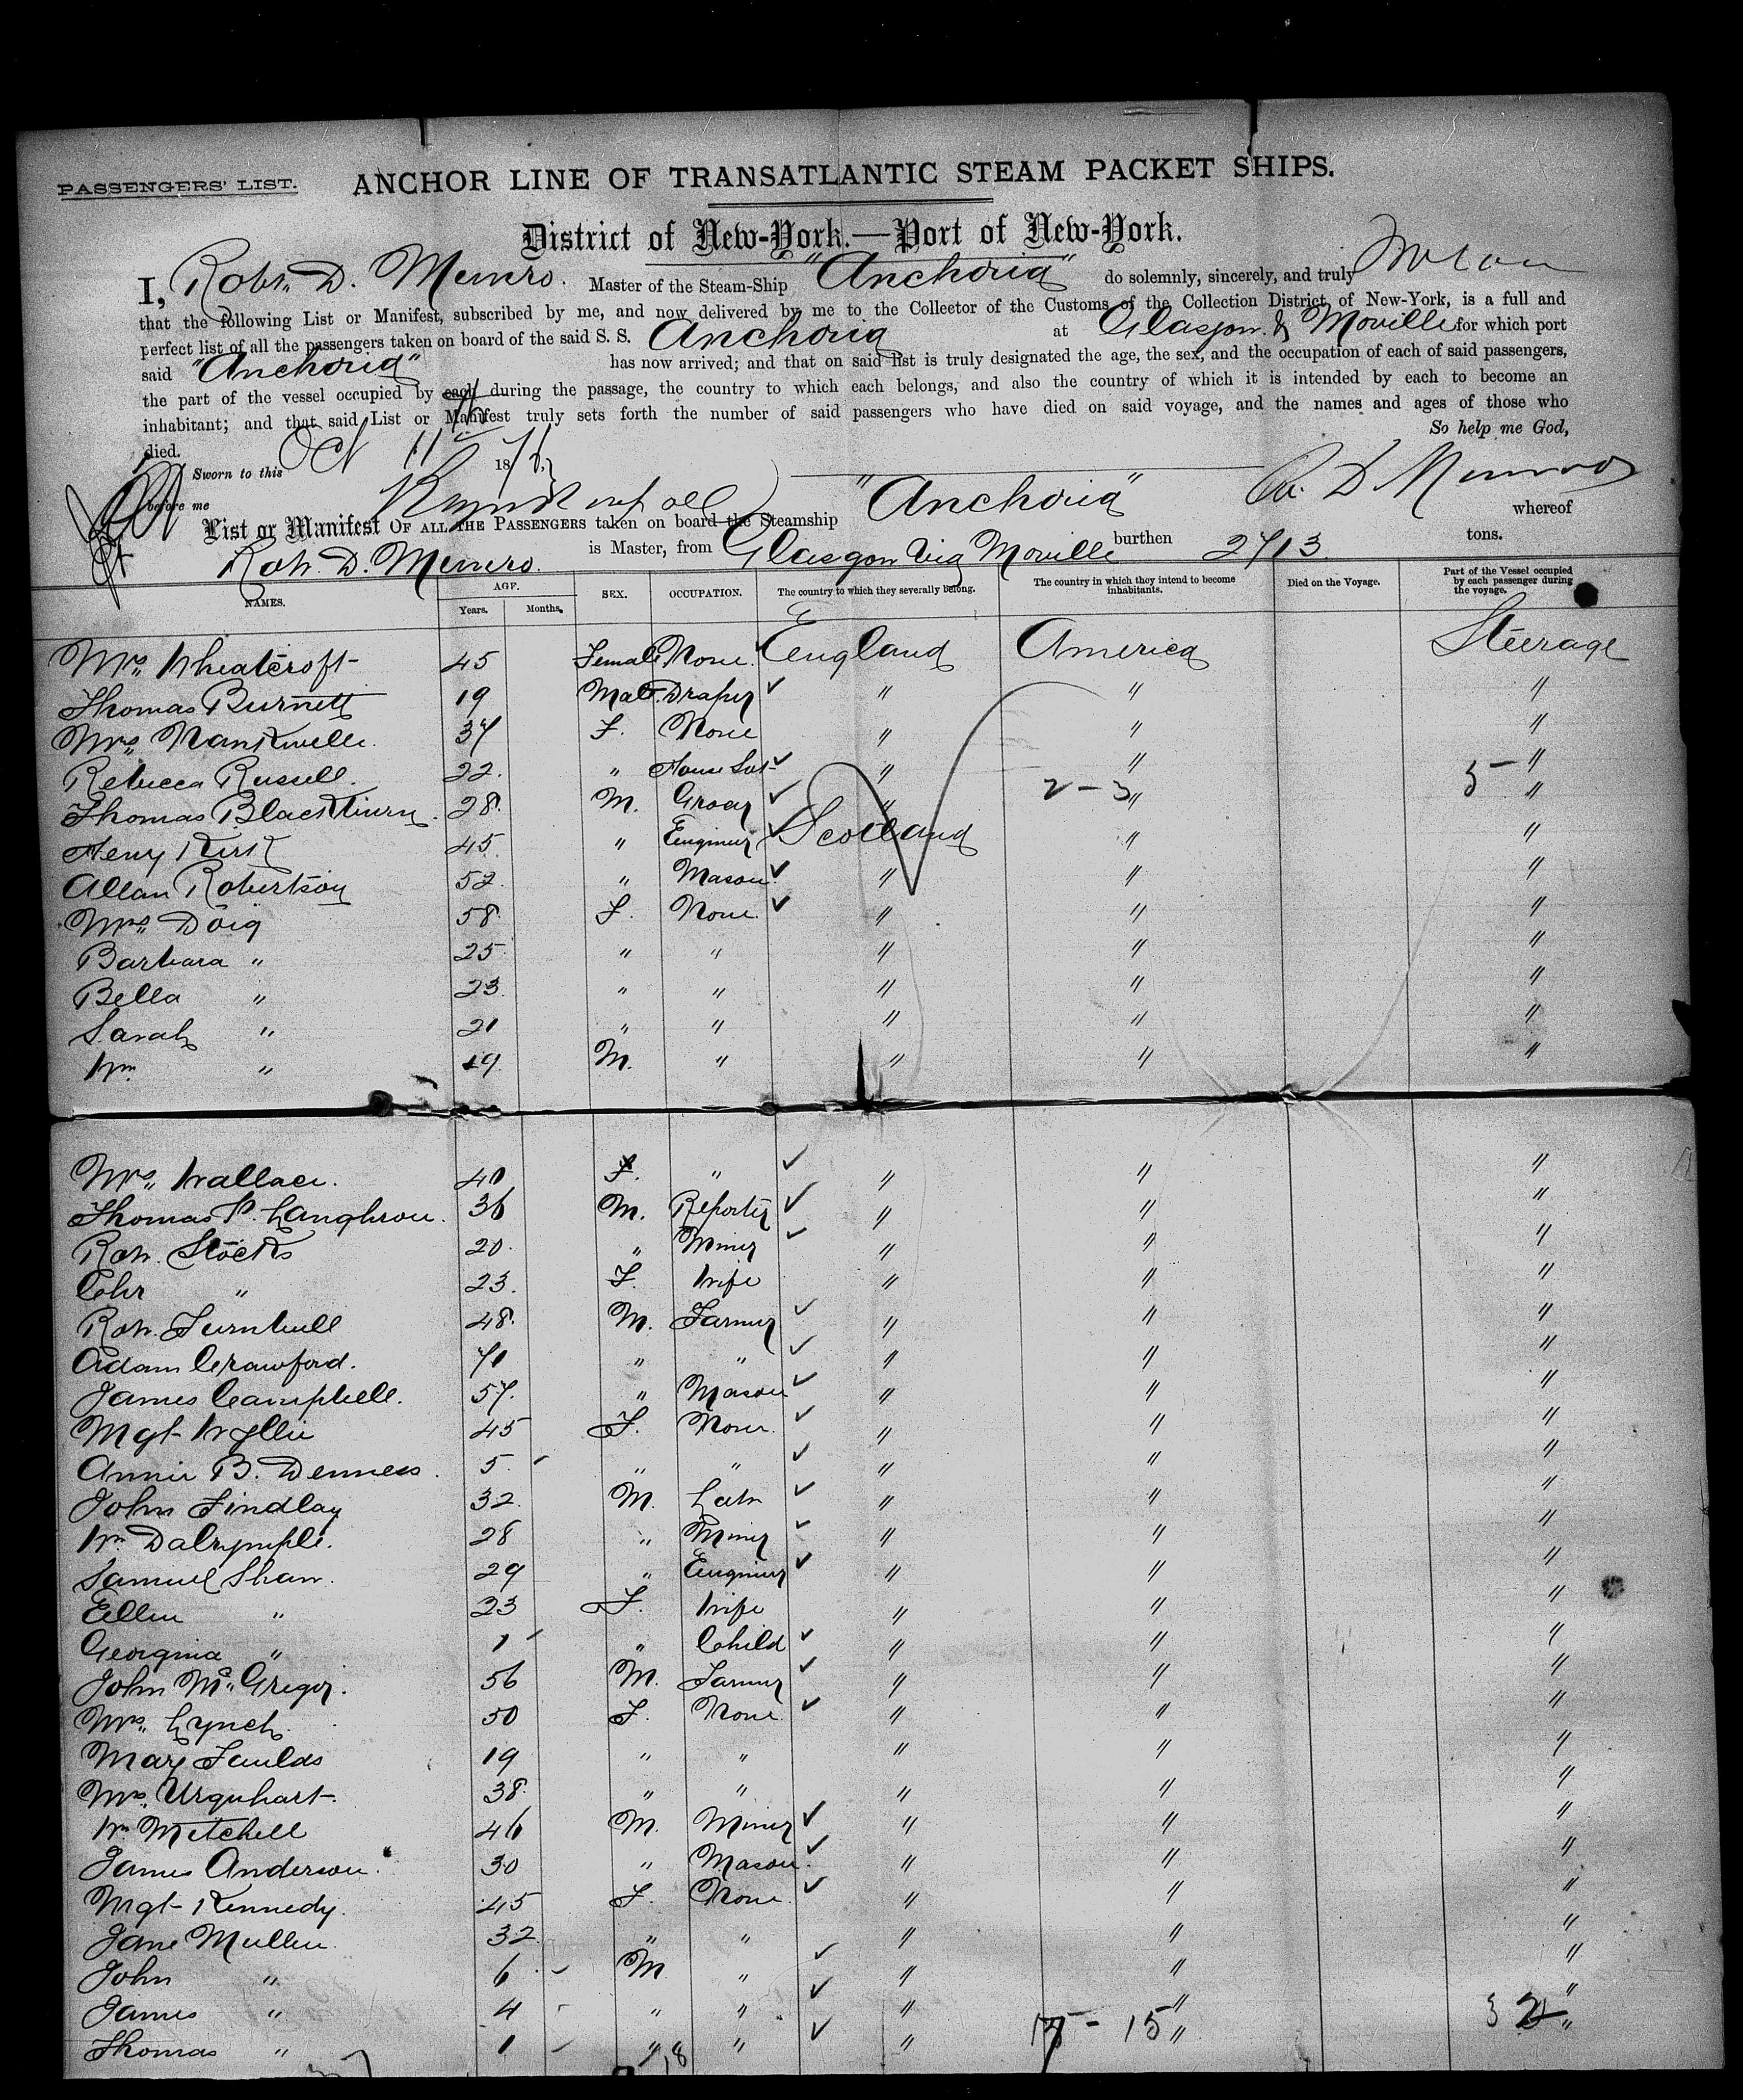 PASSENGERS' LIST. ANCHOR LINE OF TRANSATLANTIC STEAM PACKET SHIPS.
District of New-York.—Port of New-York.
I, Robt. D. Munro. Master of the Steam-Ship "Anchoria" do solemnly, sincerely, and truly
that the following List or Manifest, subscribed by me, and now delivered by me to the Collector of the Customs of the Collection District of New-York, is a full and
perfect list of all the passengers taken on board of the said S. S. Anchoria at Glasgow & Moville for which port
said "Anchoria" has now arrived; and that on said list is truly designated the age, the sex, and the occupation of each of said passengers,
the part of the vessel occupied by each during the passage, the country to which each belongs, and also the country of which it is intended by each to become an
inhabitant; and that said List or Manifest truly sets forth the number of said passengers who have died on said voyage, and the names and ages of those who
died. So help me God,
Sworn to this Oct 11th 18
before me R. D. Munro
List or Manifest OF ALL THE PASSENGERS taken on board the Steamship "Anchoria" whereof
Robt. D. Munro. is Master, from Glasgow via Moville burthen 2713 tons.
NAMES. AGE. Years. Months. SEX. OCCUPATION. The country to which they severally belong. The country in which they intend to become inhabitants. Died on the Voyage. Part of the Vessel occupied by each passenger during the voyage.
Mrs. Wheatcroft 45 Female None. England America Steerage
Thomas Burnett 19 Male Draper " " "
Mrs. Nankivelle. 37 F. None " " "
Rebecca Russell. 22. " House Svt " " "
2 - 3 5 -
Thomas Blackburn. 28. M. Grocer " " "
Heny Kirk 45. " Engineer Scotland " "
Allan Robertson 52. " Mason. " " "
Mrs. Doig 58. F. None. " " "
Barbara " 25. " " " " "
Bella " 23. " " " " "
Sarah " 21 " " " " "
Wm " 19. M. " " " "
Mrs. Wallace. 40 F. " " " "
Thomas P. Langhron. 36 M. Reporter " " "
Robt. Stocks 20. " Miner " " "
Chr " 23. F. Wife " " "
Robt. Turnbull 48. M. Farmer " " "
Adam Crawford. 71 " " " " "
James Campbell. 57. " Mason " " "
Mgt Wyllie 45 F. None. " " "
Annie B. Denness. 5. " " " " "
John Findlay 32. M. Labr " " "
Wm Dalrymple. 28 " Miner " " "
Samuel Shaw. 29 " Engineer " " "
Ellen " 23 F. Wife " " "
Georgina " 1 " Child " " "
John Mc.Gregor. 56 M. Farmer " " "
Mrs. Lynch. 50 F. None. " " "
Mary Faulds 19 " " " " "
Mrs. Urquhart. 38. " " " " "
Wm Mitchell 46 M. Miner " " "
James Anderson. 30 " Mason. " " "
Mgt Kennedy. 45 F. None. " " "
Jane Mullen. 32. " " " " "
John " 6 M " " " "
James " 4 " " " " "
Thomas " 1 " " " 15 " "